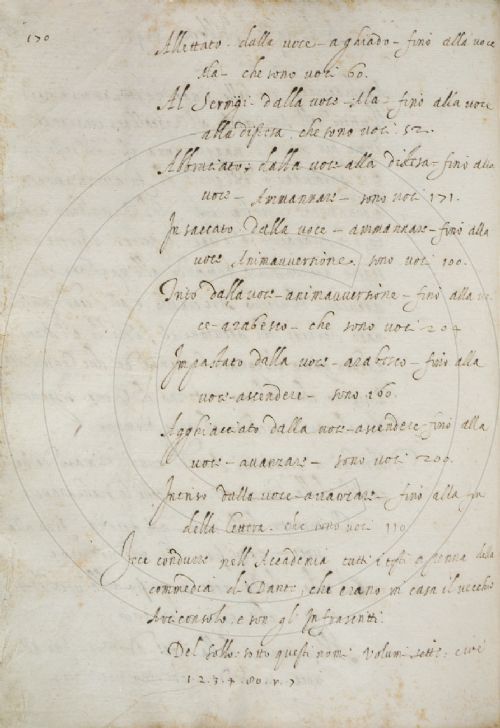 170
Allettato. dalla voce - a ghiado - fino alla voce
Ala - che sono voci 60.
Al Servigi dalla voce - Ala - fino alla voce
alla distesa, che sono voci 52.
Abbruciato, dalla voce alla distesa - fino alla
voce - Ammannare - sono voci 171.
Insaccato dalla voce - ammannare - fino alla
voce Animavversione, sono voci 100.
dalla voce - animavversione - fino alla vo
ce - arabesco - che sono voci 204
Impastato dalla voce - arabesco - fino alla
voce - ascendere - sono 160.
Agghiacciato dalla voce - ascendere fino alla
voce - avanzare - sono voci 209.
Intriso dalla voce - avanzare - fino alla fin
della lettera. che sono voci 110
condurre nell'Accademia tutti i testi a penna della
commedia di Dante, che erano in casa il vecchio
Arciconsolo, e son gl'Infrascritti
Del sollo sotto questi nomi Volumi sette, cioè
1. 2. 3. 4. 80.